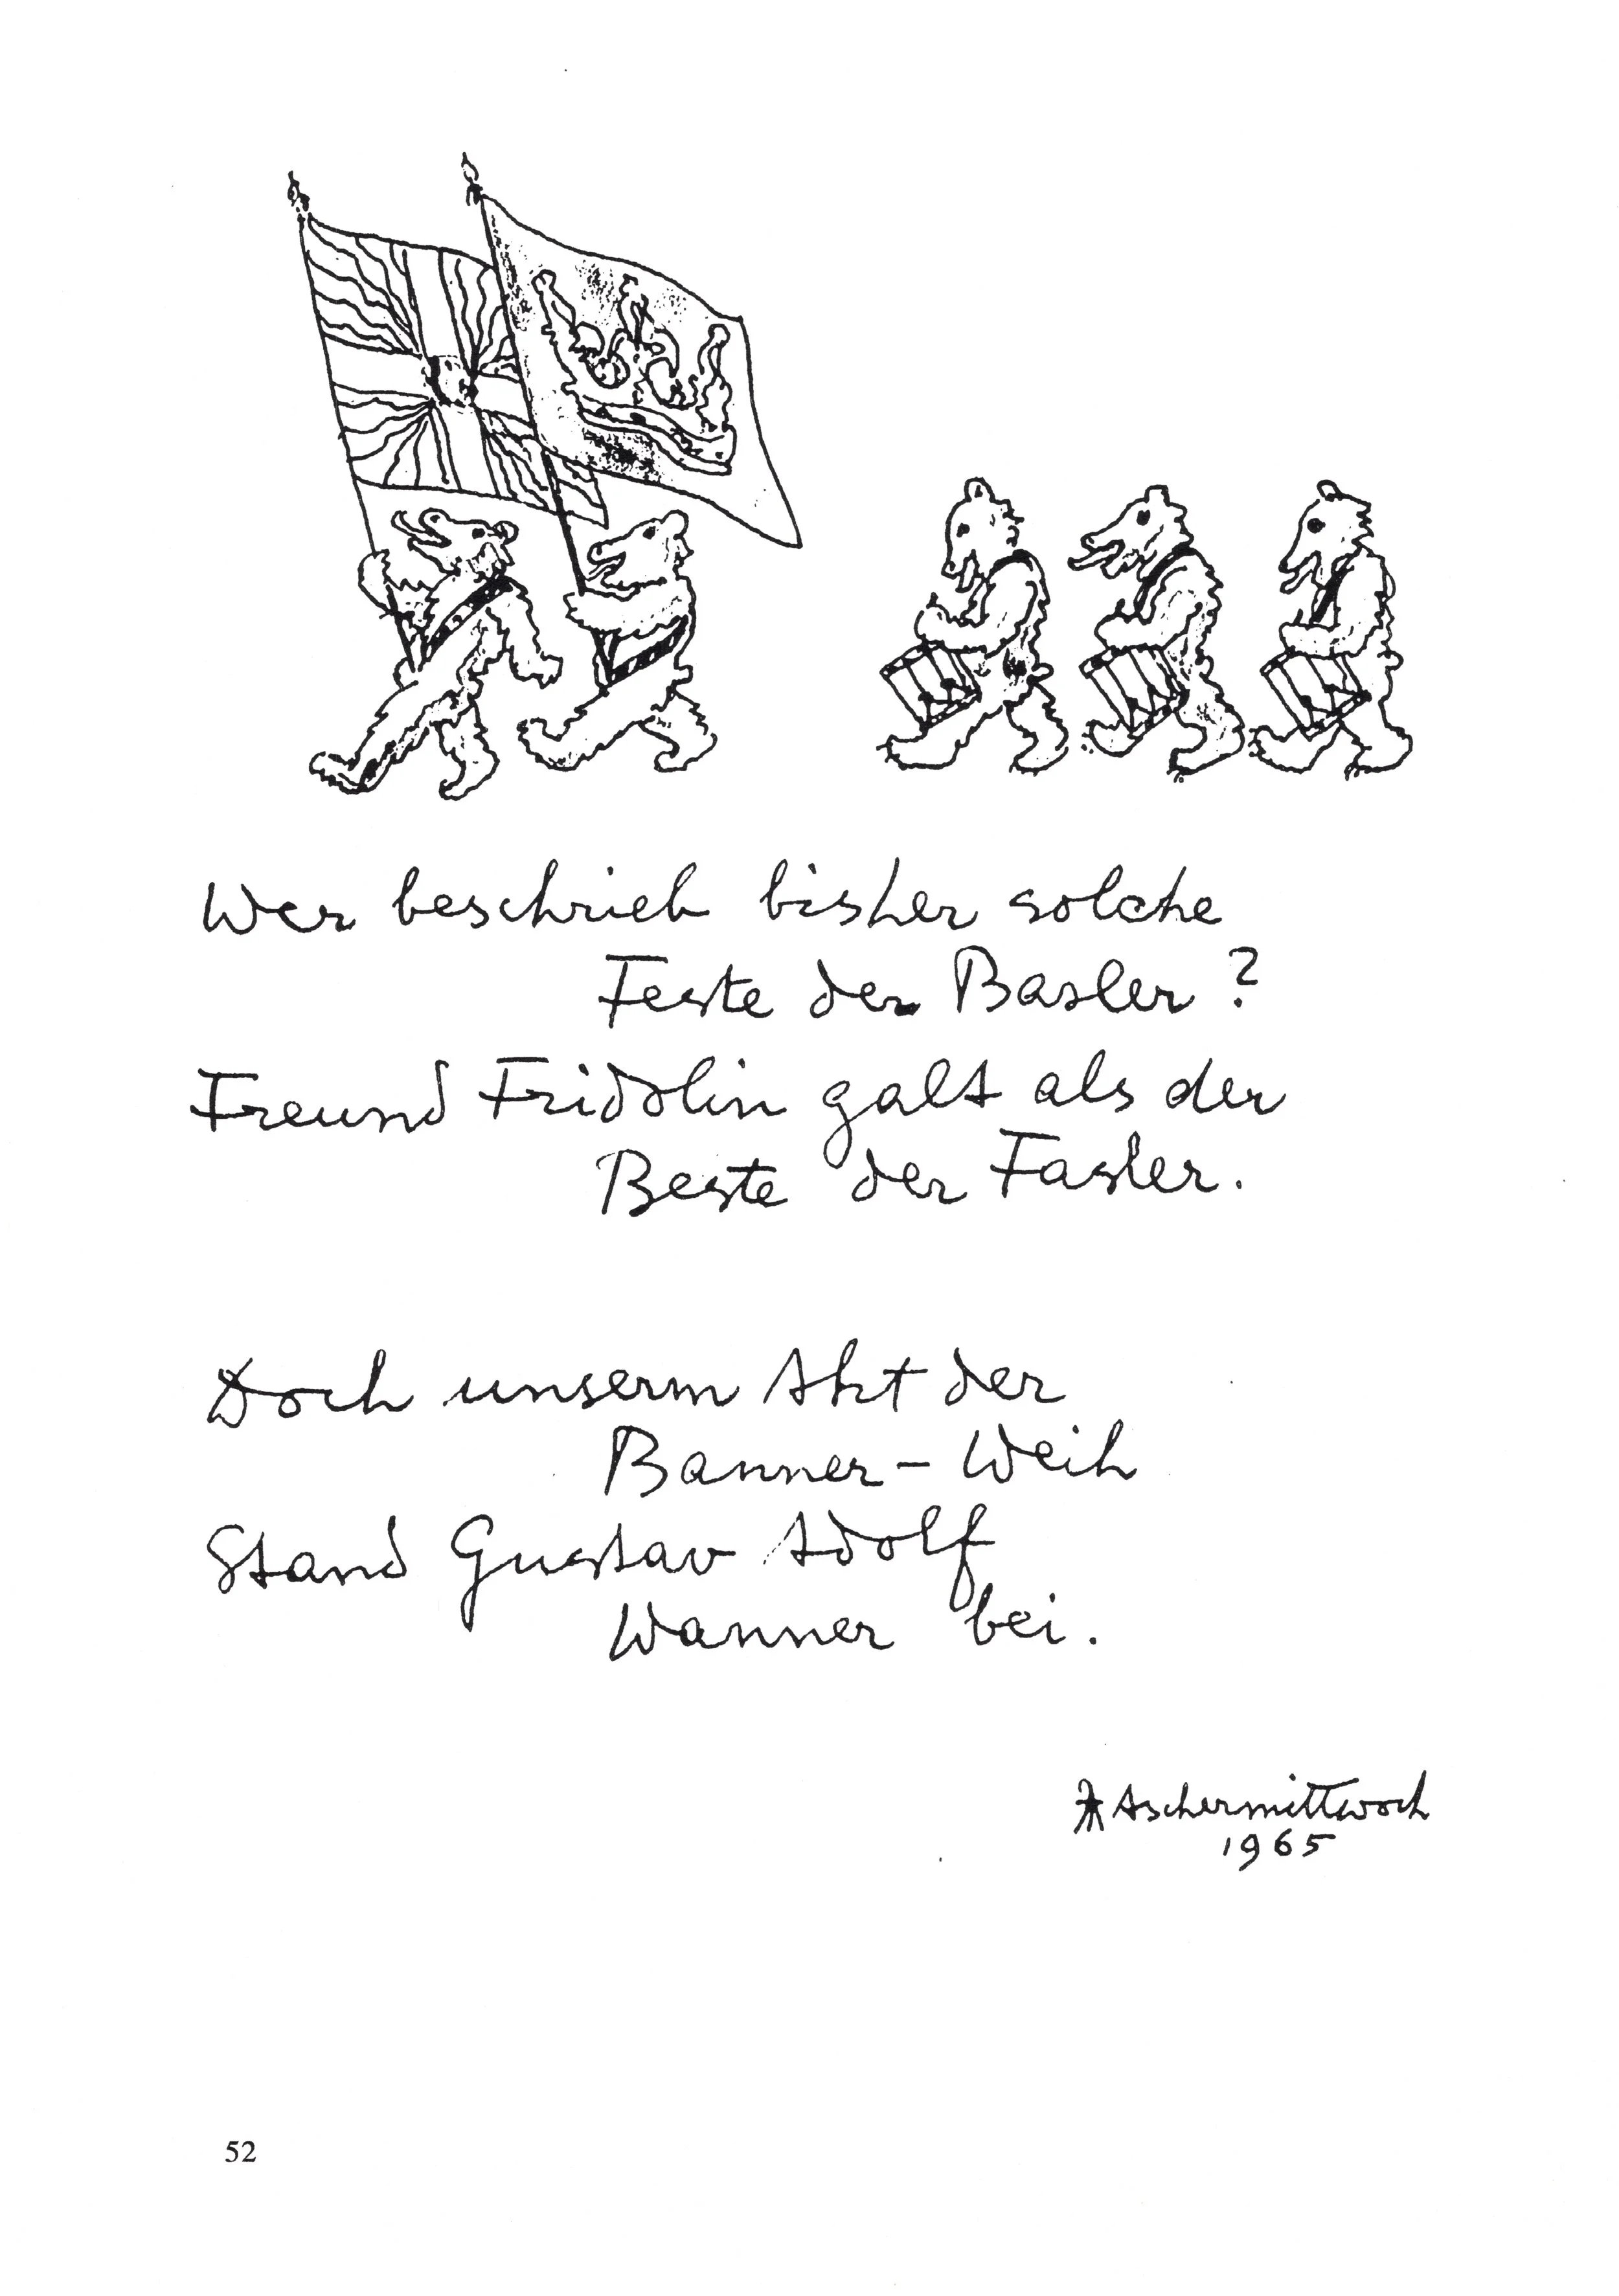 Wer beschrieb bisher solche
Feste der Basler?
Freund Fridolin galt als der
Beste der Fasler.
Doch unserm Akt der
Banner-Weih
Stand Gustav Adolf
Wanner bei.
Aschermittwoch
1965
52